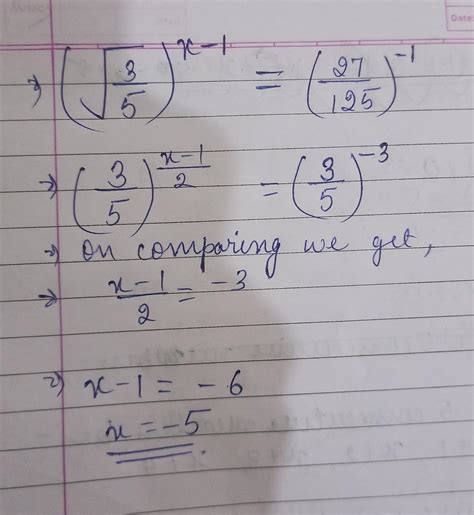 Date:
→ (√(3/5))^(x-1) = (27/125)^-1
→ (3/5)^((x-1)/2) = (3/5)^-3
→ on comparing we get,
→ (x-1)/2 = -3
→ x-1 = -6
x = -5.